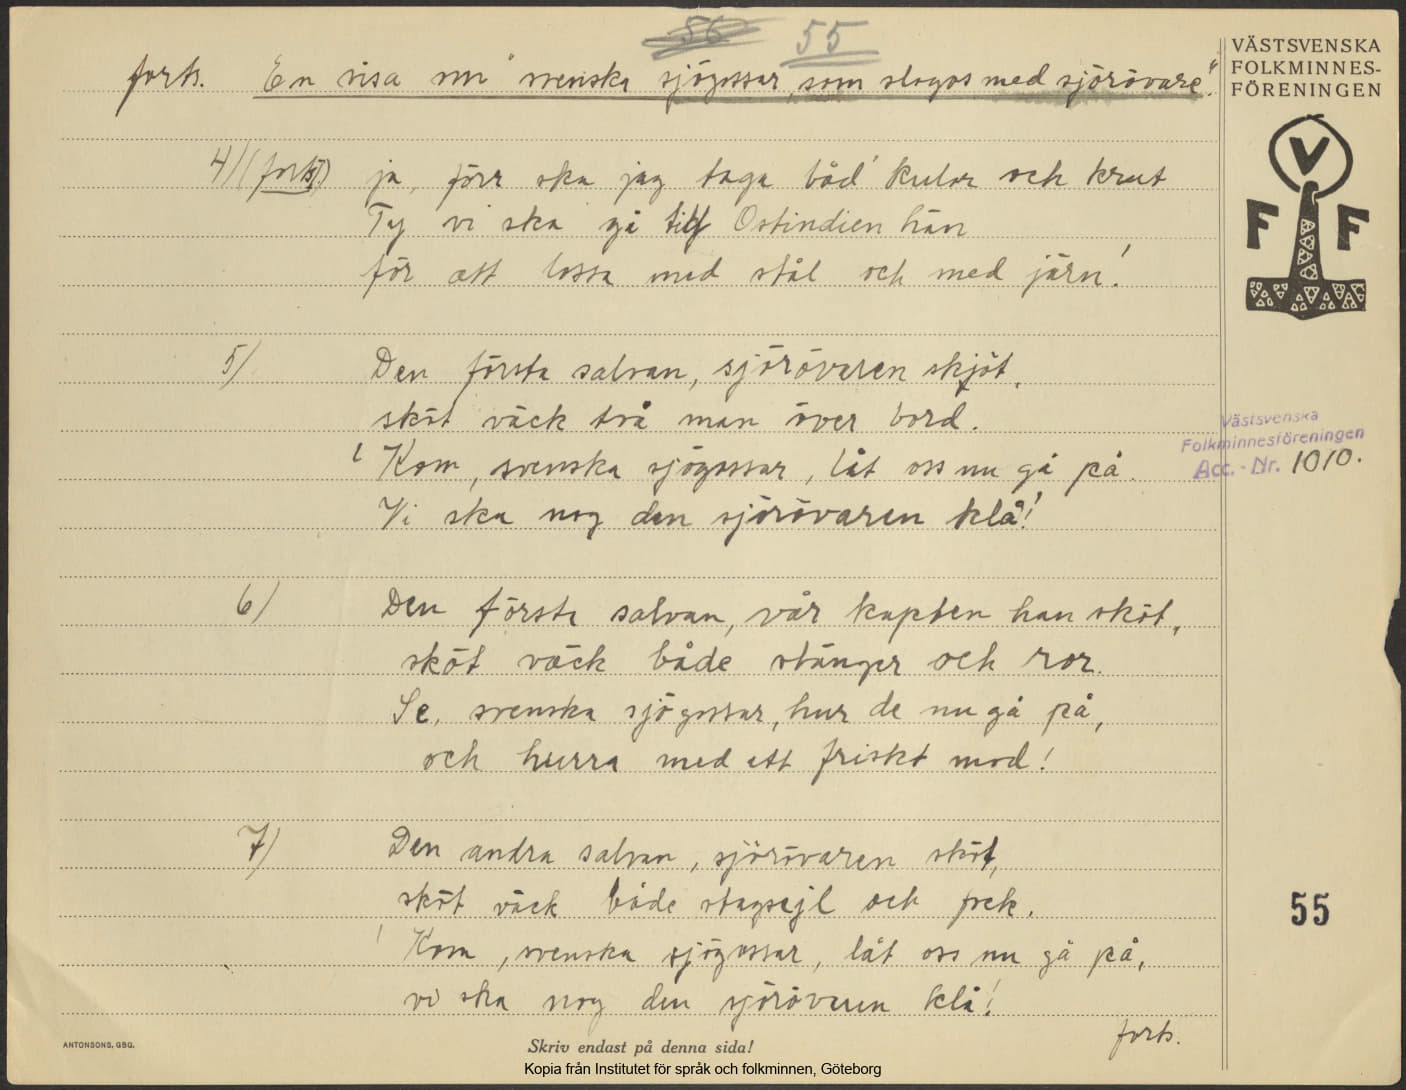 56 55
forts. En visa om "svenska sjögossar, som slogos med sjörövare".
VÄSTSVENSKA
FOLKMINNES-
FÖRENINGEN
V
F F
4/ (forts) ja, förr ska jag taga båd' kulor och krut
Ty vi ska gå till Ostindien hän
för att lossa med stål och med järn!
5/ Den första salvan, sjörövaren skjöt,
sköt väck två man över bord.
' Kom, svenska sjögossar, låt oss nu gå på.
Vi ska nog den sjörövaren klå!'
Västsvenska
Folkminnesföreningen
Acc.-Nr. 1010.
6/ Den första salvan, vår kapten han sköt,
sköt väck både stänger och ror.
Se, svenska sjögossar, hur de nu gå på,
och hurra med ett friskt mod!
7/ Den andra salvan, sjörövaren sköt,
sköt väck både stagsejl och fock.
' Kom, svenska sjögossar, låt oss nu gå på,
vi ska nog den sjörövaren klå!'
55
forts.
ANTONSONS, GBG.
Skriv endast på denna sida!
Kopia från Institutet för språk och folkminnen, Göteborg